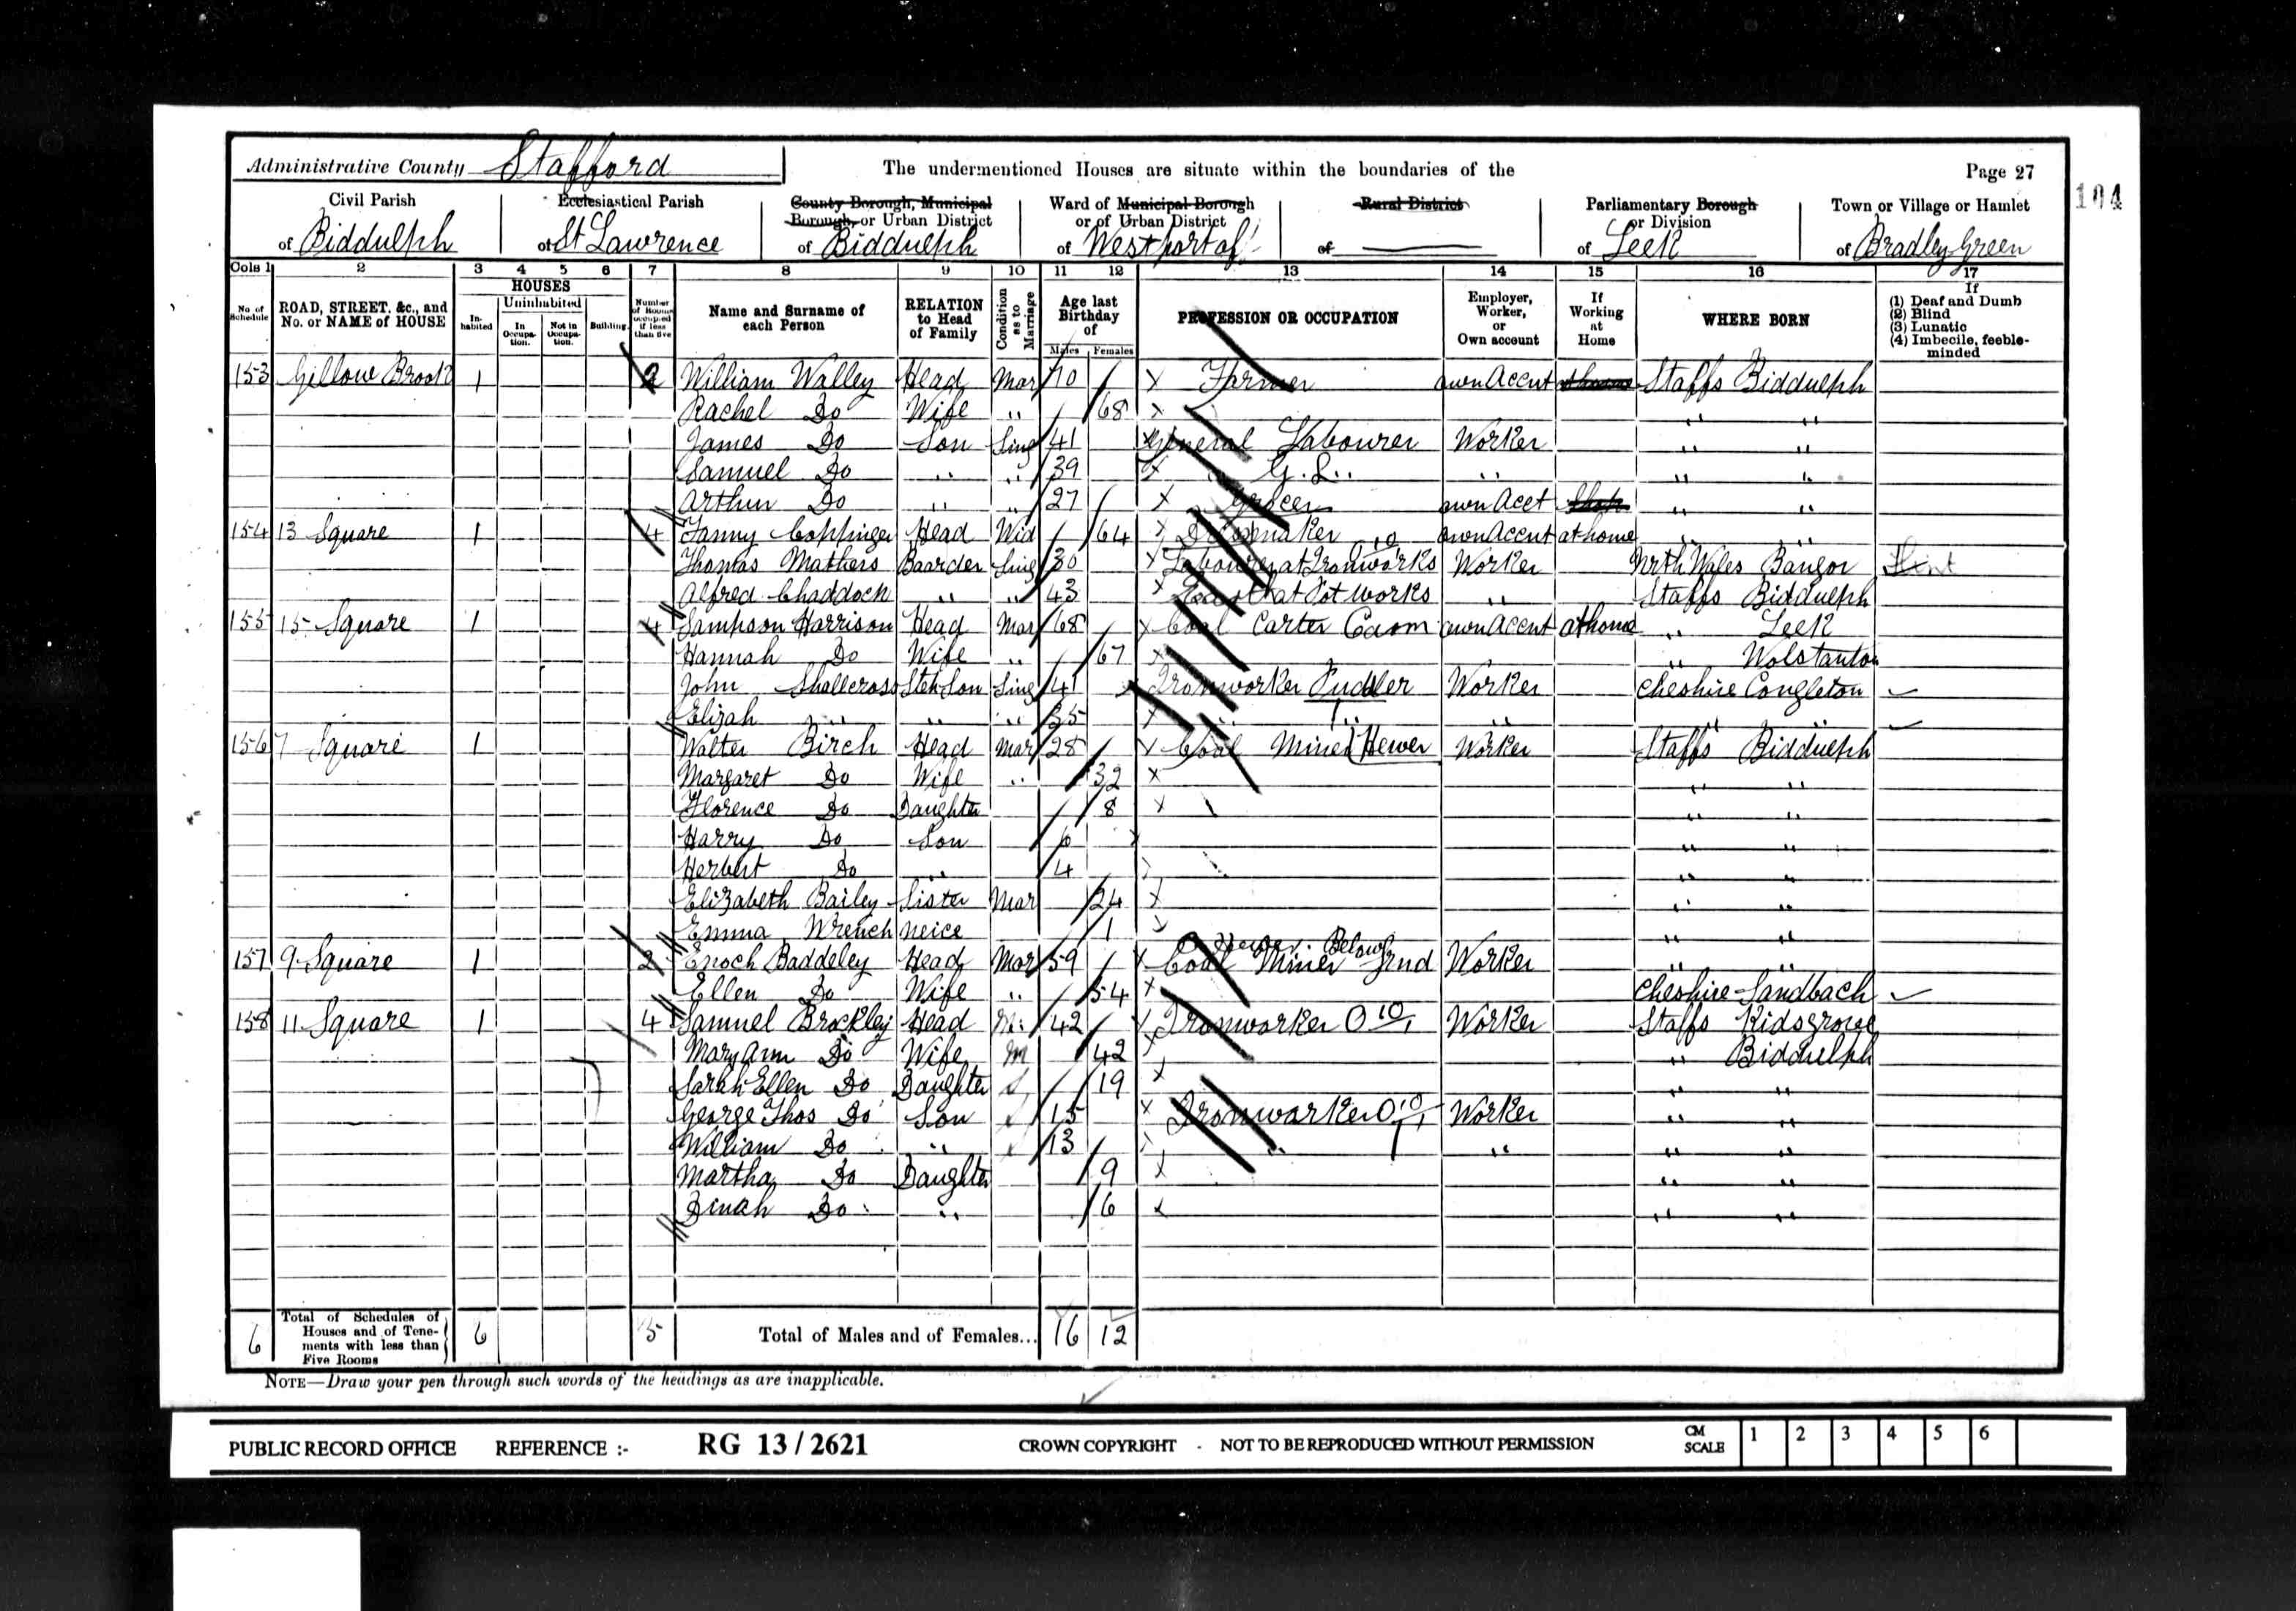 Administrative County Stafford The undermentioned Houses are situate within the boundaries of the Page 27
104
Civil Parish of Biddulph
Ecclesiastical Parish of St Lawrence
County Borough, Municipal Borough, or Urban District of Biddulph
Ward of Municipal Borough or of Urban District of West part of
Rural District of
Parliamentary Borough or Division of Leek
Town or Village or Hamlet of Bradley Green
Cols 1 2 3 4 5 6 7 8 9 10 11 12 13 14 15 16 17
No. of Schedule
ROAD, STREET, &c., and No. or NAME of HOUSE
HOUSES
Inhabited
Uninhabited
In Occupation.
Not in Occupation.
Building.
Number of Rooms occupied if less than five
Name and Surname of each Person
RELATION to Head of Family
Condition as to Marriage
Age last Birthday of
Males Females
PROFESSION OR OCCUPATION
Employer, Worker, or Own account
If Working at Home
WHERE BORN
If
(1) Deaf and Dumb
(2) Blind
(3) Lunatic
(4) Imbecile, feeble-minded
153 Gillow Brook 1 2 William Walley Head Mar 70 X Farmer own Accnt Staffs Biddulph
Rachel Do Wife " 68 X " "
James Do Son Sing 41 X General Labourer Worker " "
Samuel Do " " 39 X " G. L. " " " "
Arthur Do " " 27 X Grocer own Acct Shop " "
154 13 Square 1 4 Fanny Coppinger Head Wid 64 X Dressmaker own Accnt at home " "
Thomas Mathers Boarder Sing 30 X Labourer at Ironworks Worker Nrth Wales Bangor
Alfred Chaddock " " 43 X at Pot Works " Staffs Biddulph
155 15 Square 1 4 Sampson Harrison Head Mar 68 X Coal Carter own Accnt at home " Leek
Hannah Do Wife " 67 X " Wolstanton
John Shallcross Step Son Sing 41 X Ironworker Pudler Worker Cheshire Congleton
Elijah " " " 35 X " " " " "
156 7 Square 1 Walter Birch Head Mar 28 X Coal Miner Hewer Worker Staffs Biddulph
Margaret Do Wife " 32 X " "
Florence Do Daughter 8 X " "
Harry Do Son 6 X " "
Herbert Do " 4 X " "
Elizabeth Bailey Sister Mar 24 X " "
Emma Wrench neice 1 X " "
157 9 Square 1 2 Enoch Baddeley Head Mar 59 X Coal Miner Hewer Below Grnd Worker " "
Ellen Do Wife " 54 X Cheshire Sandbach
158 11 Square 1 4 Samuel Brockley Head M 42 X Ironworker Worker Staffs Kidsgrove
Mary Ann Do Wife M 42 X " Biddulph
Sarah Ellen Do Daughter S 19 X " "
George Thos Do Son 15 X Ironworker Worker " "
William Do " 13 X " " " "
Martha Do Daughter 9 X " "
Dinah Do " 6 X " "
6 Total of Schedules of Houses and of Tenements with less than Five Rooms 6 5 Total of Males and of Females... 16 12
NOTE—Draw your pen through such words of the headings as are inapplicable.
PUBLIC RECORD OFFICE REFERENCE :- RG 13 / 2621 CROWN COPYRIGHT - NOT TO BE REPRODUCED WITHOUT PERMISSION CM SCALE 1 2 3 4 5 6